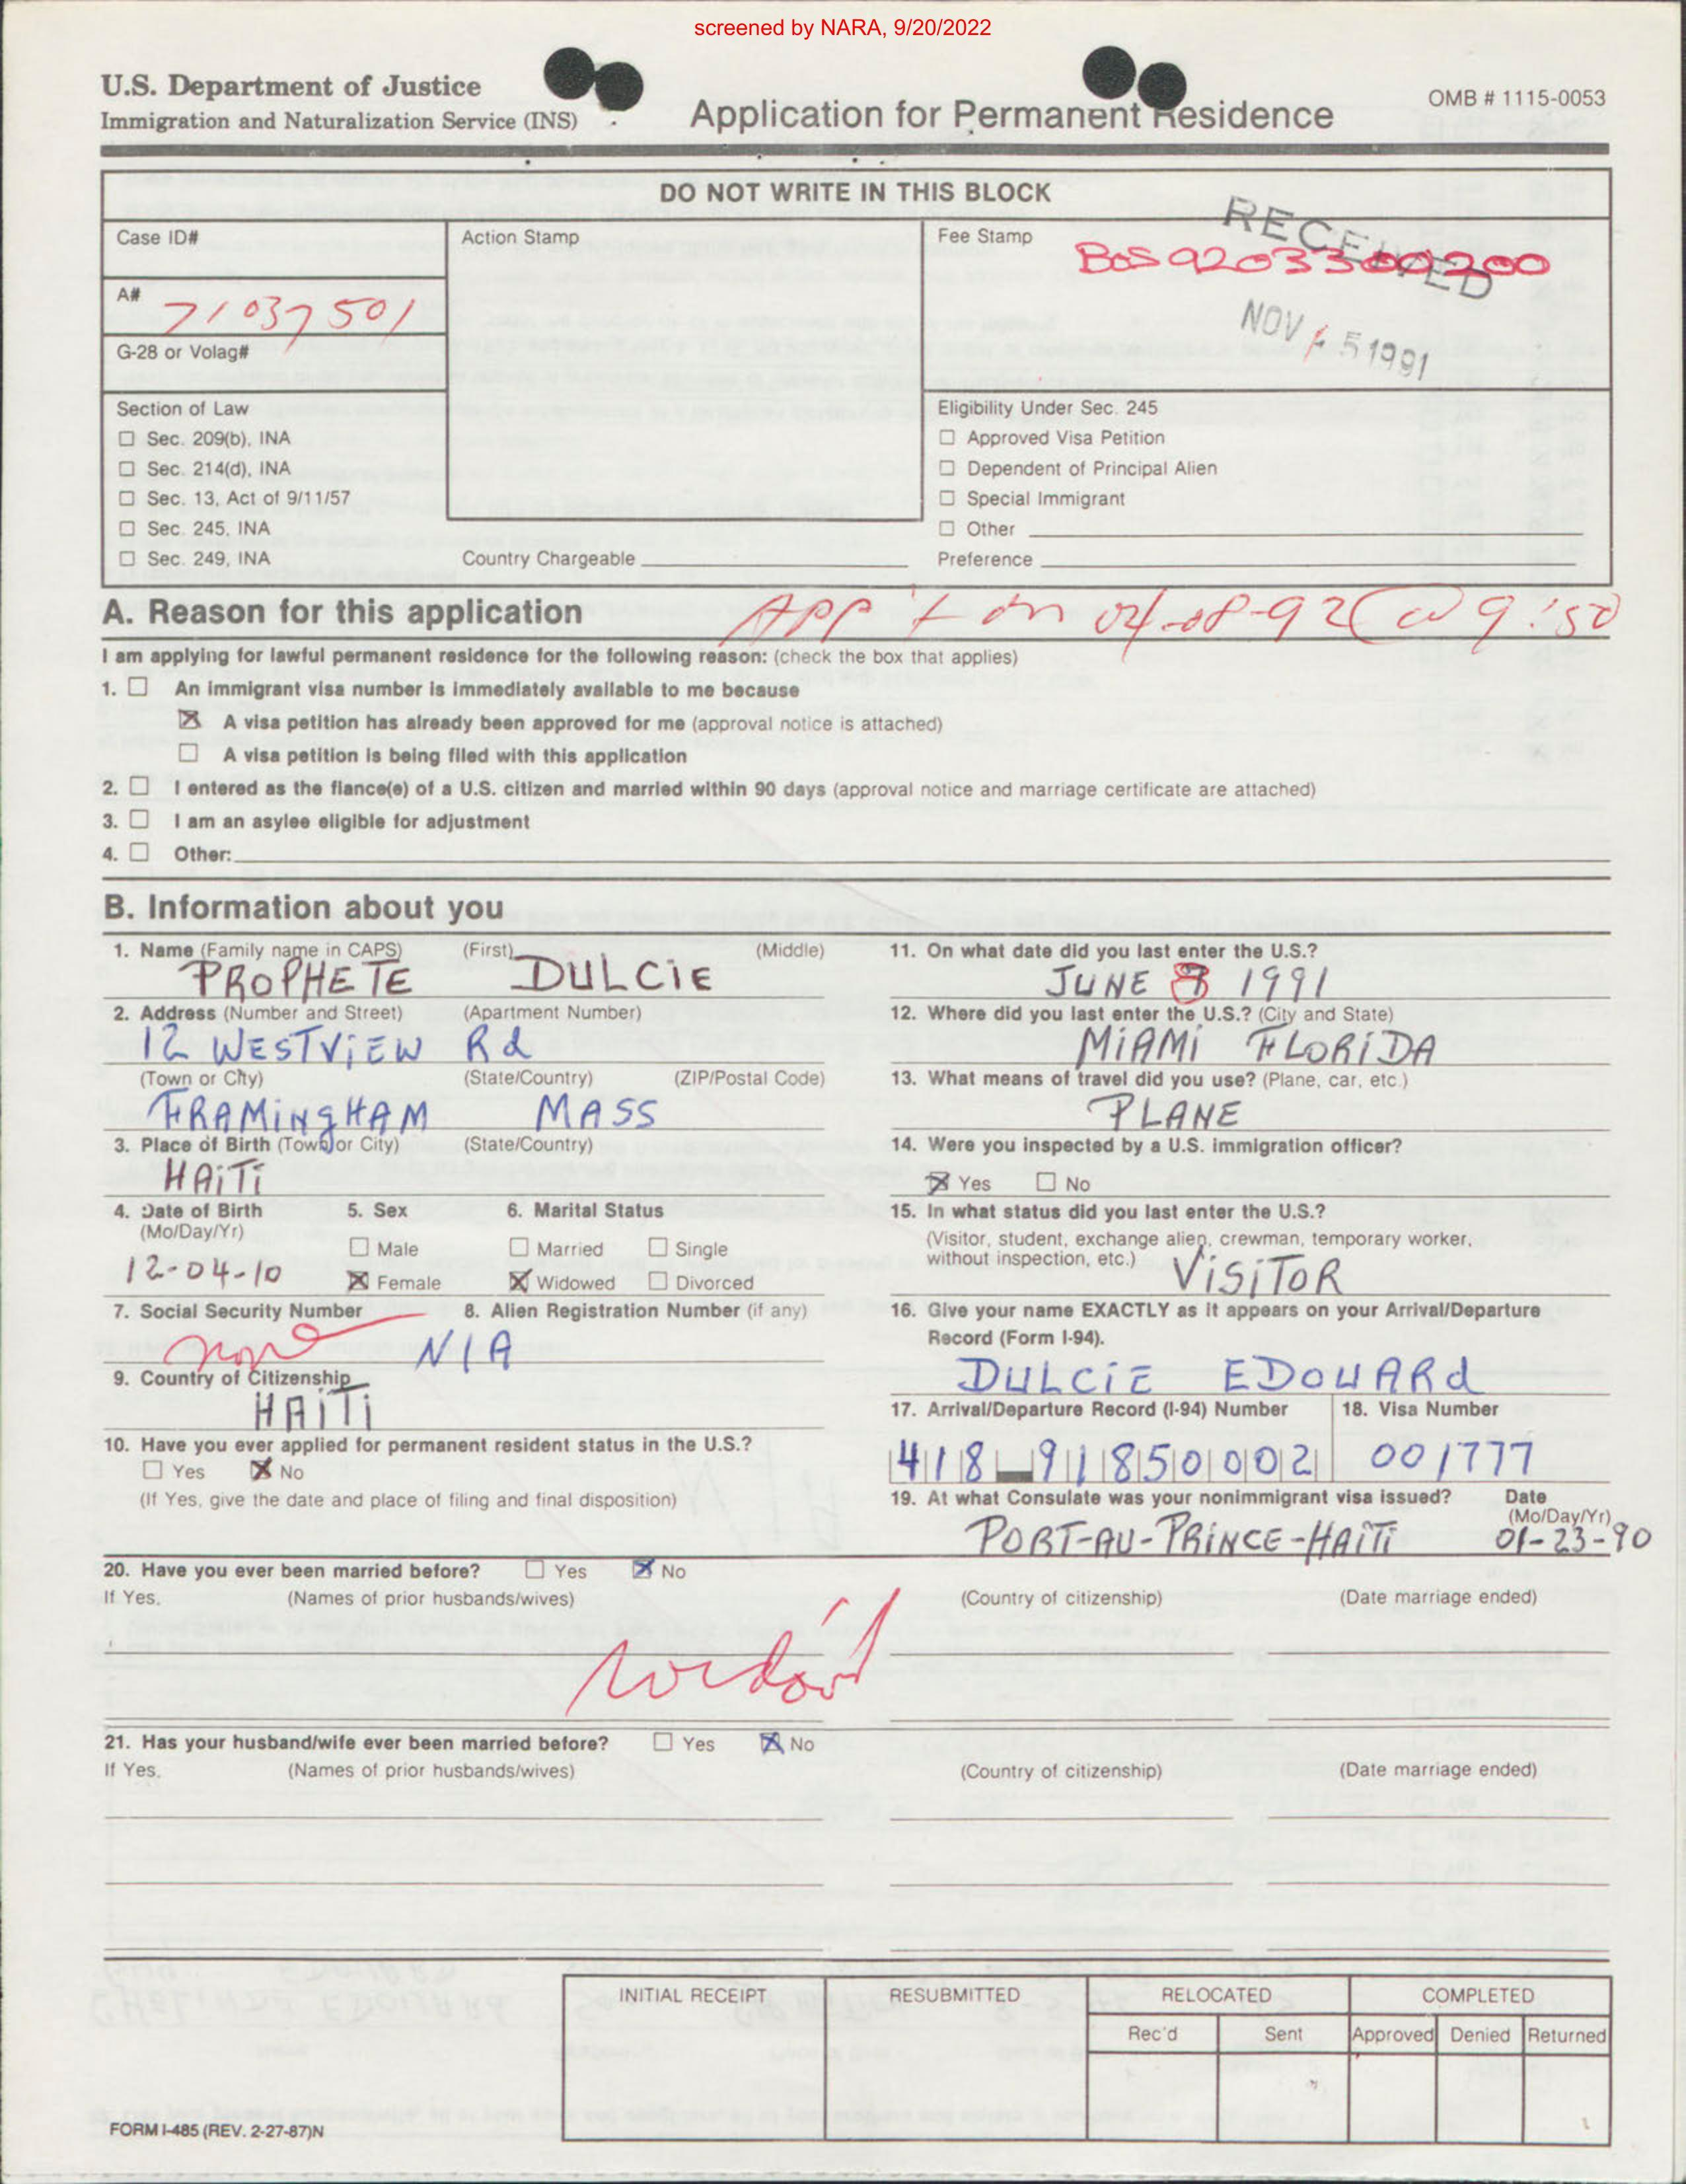 screened by NARA, 9/20/2022
U.S. Department of Justice
Immigration and Naturalization Service (INS)
Application for Permanent Residence
OMB # 1115-0053
DO NOT WRITE IN THIS BLOCK
Case ID#
Action Stamp
Fee Stamp
RECEIVED
BOS 9203300200
NOV 5 1991
A#
71037501
G-28 or Volag#
Section of Law
☐ Sec. 209(b), INA
☐ Sec. 214(d), INA
☐ Sec. 13, Act of 9/11/57
☐ Sec. 245, INA
☐ Sec. 249, INA
Country Chargeable
Eligibility Under Sec. 245
☐ Approved Visa Petition
☐ Dependent of Principal Alien
☐ Special Immigrant
☐ Other
Preference
A. Reason for this application
APP't on 04-08-92 @ 9:50
I am applying for lawful permanent residence for the following reason: (check the box that applies)
1. ☐ An immigrant visa number is immediately available to me because
☒ A visa petition has already been approved for me (approval notice is attached)
☐ A visa petition is being filed with this application
2. ☐ I entered as the fiance(e) of a U.S. citizen and married within 90 days (approval notice and marriage certificate are attached)
3. ☐ I am an asylee eligible for adjustment
4. ☐ Other:
B. Information about you
1. Name (Family name in CAPS) (First) (Middle)
PROPHETE DULCiE
2. Address (Number and Street) (Apartment Number)
12 WESTViEW Rd
(Town or City) (State/Country) (ZIP/Postal Code)
FRAMiNgHAM MASS
3. Place of Birth (Town or City) (State/Country)
HAiTi
4. Date of Birth
(Mo/Day/Yr)
12-04-10
5. Sex
☐ Male
☒ Female
6. Marital Status
☐ Married ☐ Single
☒ Widowed ☐ Divorced
7. Social Security Number
none
8. Alien Registration Number (if any)
N/A
9. Country of Citizenship
HAiTi
10. Have you ever applied for permanent resident status in the U.S.?
☐ Yes ☒ No
(If Yes, give the date and place of filing and final disposition)
11. On what date did you last enter the U.S.?
JUNE 8 1991
12. Where did you last enter the U.S.? (City and State)
MiAMi FLORiDA
13. What means of travel did you use? (Plane, car, etc.)
PLANE
14. Were you inspected by a U.S. immigration officer?
☒ Yes ☐ No
15. In what status did you last enter the U.S.?
(Visitor, student, exchange alien, crewman, temporary worker,
without inspection, etc.)
ViSiTOR
16. Give your name EXACTLY as it appears on your Arrival/Departure
Record (Form I-94).
DULCiE EDOUARd
17. Arrival/Departure Record (I-94) Number
418 91850002
18. Visa Number
001777
19. At what Consulate was your nonimmigrant visa issued?
PORT-AU-PRiNCE-HAiTi
Date
(Mo/Day/Yr)
01-23-90
20. Have you ever been married before? ☐ Yes ☒ No
If Yes, (Names of prior husbands/wives) (Country of citizenship) (Date marriage ended)
21. Has your husband/wife ever been married before? ☐ Yes ☒ No
If Yes, (Names of prior husbands/wives) (Country of citizenship) (Date marriage ended)
INITIAL RECEIPT
RESUBMITTED
RELOCATED
COMPLETED
Rec'd
Sent
Approved
Denied
Returned
FORM I-485 (REV. 2-27-87)N